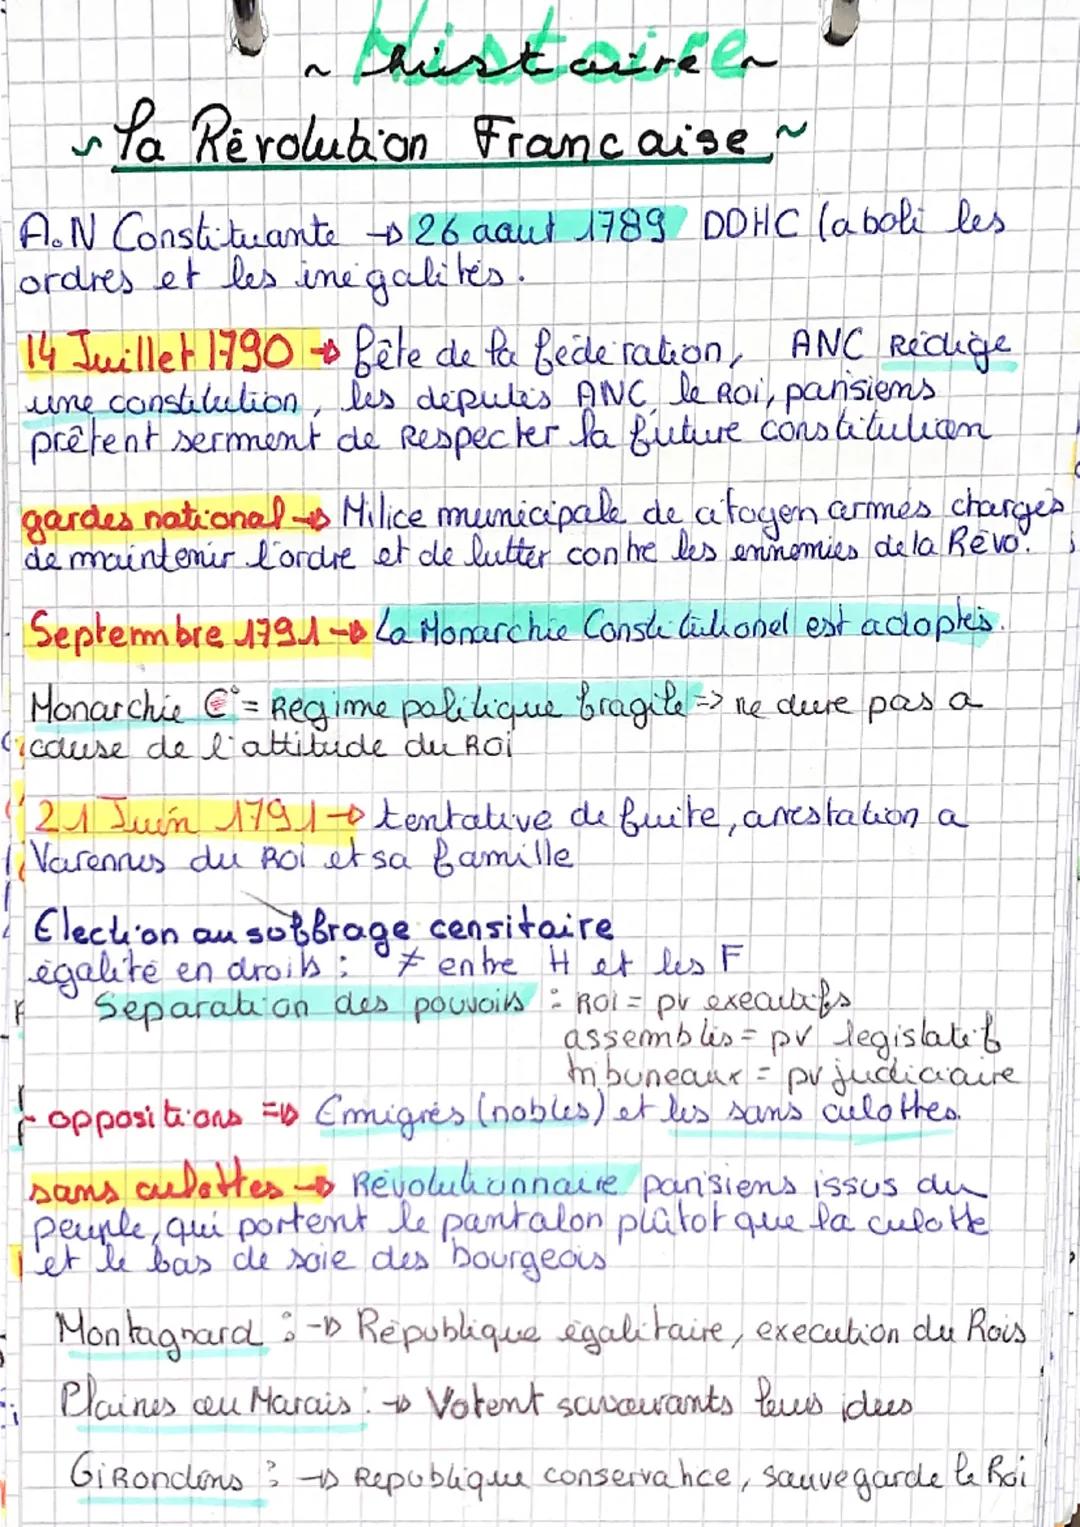 Histoire
~ histoire ~
~ La Révolution Francaise ~
A.N Constituante → 26 aout 1789 DDHC (aboli les
ordres et les inégalités.
14 Juillet 1790 → fête de la fédération, ANC Rédige
une constitution, les députés ANC, le Roi, parisiens
prêtent serment de Respecter la future constitution
gardes national → Milice municipale de citoyen armés chargés
de maintenir l'ordre et de lutter contre les ennemies de la Révo.
Septembre 1791 → La Monarchie Constitutionel est adoptés.
Monarchie C° = Régime politique fragile => ne dure pas a
cause de l'attitude du Roi
21 Juin 1791 → tentative de fuite, arrestation a
Varennes du Roi et sa famille
Election au soffrage censitaire
égalité en droits : ≠ entre H et les F
Séparation des pouvoirs : Roi = pv executifs
assemblés = pv législatif
tribuneaux = pv judiciaire
- oppositions => Emigrés (nobles) et les sans culottes.
sans culottes → Révolutionnaire parisiens issus du
peuple, qui portent le pantalon plûtot que la culotte
et le bas de soie des bourgeois
Montagnard : → République égalitaire, execution du Rois
Plaines ou Marais : → Votent suivants leurs idées
Girondins : → République conservatice, sauvegarde le Roi